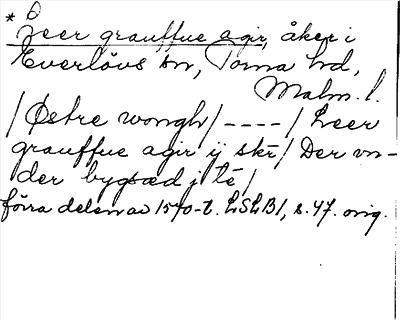 * Leer grauffue agir, åker i
Everlövs sn, Torna hd,
Malm. l.
/ Østre wongh / ---- / Leer
grauffue agir ij skr / Der vn-
der bygsæd j te /
förra delen av 1570-t. LSLB1, s. 47. orig.